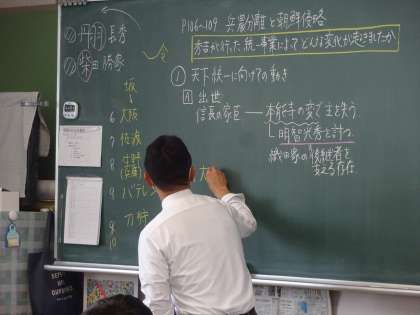 P106~109 兵農分離と朝鮮侵略
秀吉が行った統一事業によってどんな変化が起こりましたか
① 天下統一に向けての動き
出世
信長の家臣 ― 本能寺の変で主と失う
明智光秀を討つ。
織田家の後継者を支える存在
① 丹羽長秀
② 柴田勝家
坂
6 大阪
7 佐渡
8
9 バテレン
9 刀狩
10